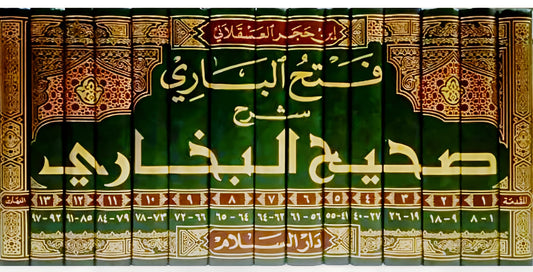 ابن حجر العسقلاني
فتح الباري
شرح
صحيح البخاري
المقدمة ١ ٢ ٣ ٤ ٥ ٦ ٧ ٨ ٩ ١٠ ١١ ١٢ ١٣ الفهارس
١-٨ ٩-١٨ ١٩-٢٦ ٢٧-٤٠ ٤١-٥٥ ٥٦-٦١ ٦٢-٦٤ ٦٤-٦٥ ٧٣-٧٨ ٧٩-٨٤ ٨٥-٩١ ٩٢-٩٧
دار السلام